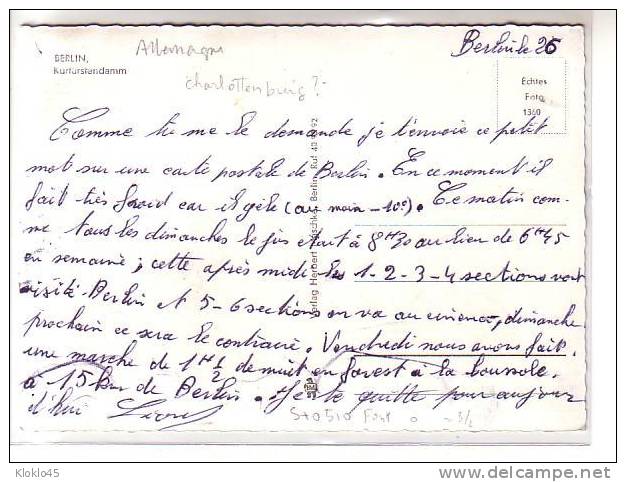 BERLIN,
Kurfürstendamm
Allemagne
charlottenburg ?
Berlin le 26
Echtes
Foto
1360
Comme tu me le demande, je t'envoie ce petit
mot sur une carte postale de Berlin. En ce moment il
fait très froid car il gèle (au moin -10°). Ce matin com-
me tous les dimanches le jus était à 8H30 au lieu de 6H45
en semaine; cette après midi les 1-2-3-4 sections vont
visité Berlin et 5-6 sections on va au cinema, dimanche
prochain ce sera le contraire. Vendredi nous avons fait
une marche de 1H½ de nuit en forest à la boussole.
à 15km de Berlin. Je te quitte pour aujour
d'hui
Verlag Herbert Berlin, Ruf
Kloklo45
delcampe.net